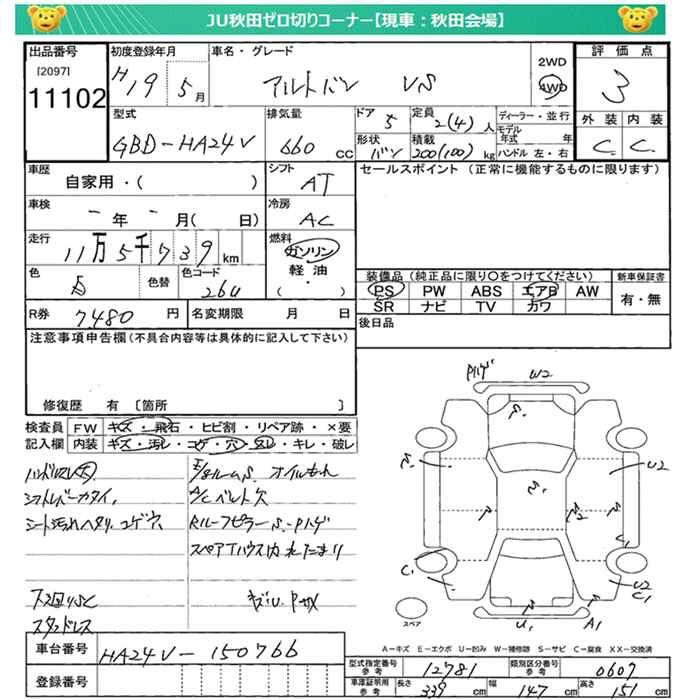 JU秋田ゼロ切りコーナー【現車：秋田会場】
出品番号
[2097]
11102
初度登録年月
H19 5月
車名・グレード
アルトバン VS
2WD
4WD
評価点
3
外装 内装
C C
型式
GBD-HA24V
排気量
660 cc
ドア
5
形状
バン
定員
2(4)人
積載
200(100)kg
ディーラー・並行
モデル年式 年
ハンドル 左・右
車歴
自家用・( )
シフト
AT
車検
- 年 - 月( 日)
冷房
AC
走行
11万5千739km
燃料
ガソリン
軽油
・
( )
色
白
色替
色コード
26U
R券 7480 円
名変期限 月 日
セールスポイント (正常に機能するものに限ります)
装備品(純正品に限り○をつけてください)
PS PW ABS エアB AW
SR ナビ TV カワ
新車保証書
有・無
後日品
注意事項申告欄(不具合等は具体的に記入して下さい)
修復歴 有 〔箇所 〕
検査員記入欄
FW キズ・飛石・ヒビ割・リペア跡・×要
内装 キズ・汚レ・コゲ・穴・ヌレ・キレ・破レ
ハンドルスレ
シフトレバーカタイ
シート汚れヘタリ コゲ穴
E/gルームS オイルもれ
A/Cベルト欠
RルーフピラーS
下廻りSC
スタッドレス
キズU
Pハゲ
W2
S
U2
C1
C
U2
C1
U1
A1
スペア
A=キズ E=エクボ U=凹み W=補修跡 S=サビ C=腐食 XX=交換済
車台番号
HA24V-150766
登録番号
型式指定番号
参考
12781
類別区分番号
参考
0607
車庫証明用
参考
長さ 339 cm
幅 147 cm
高さ 151 cm